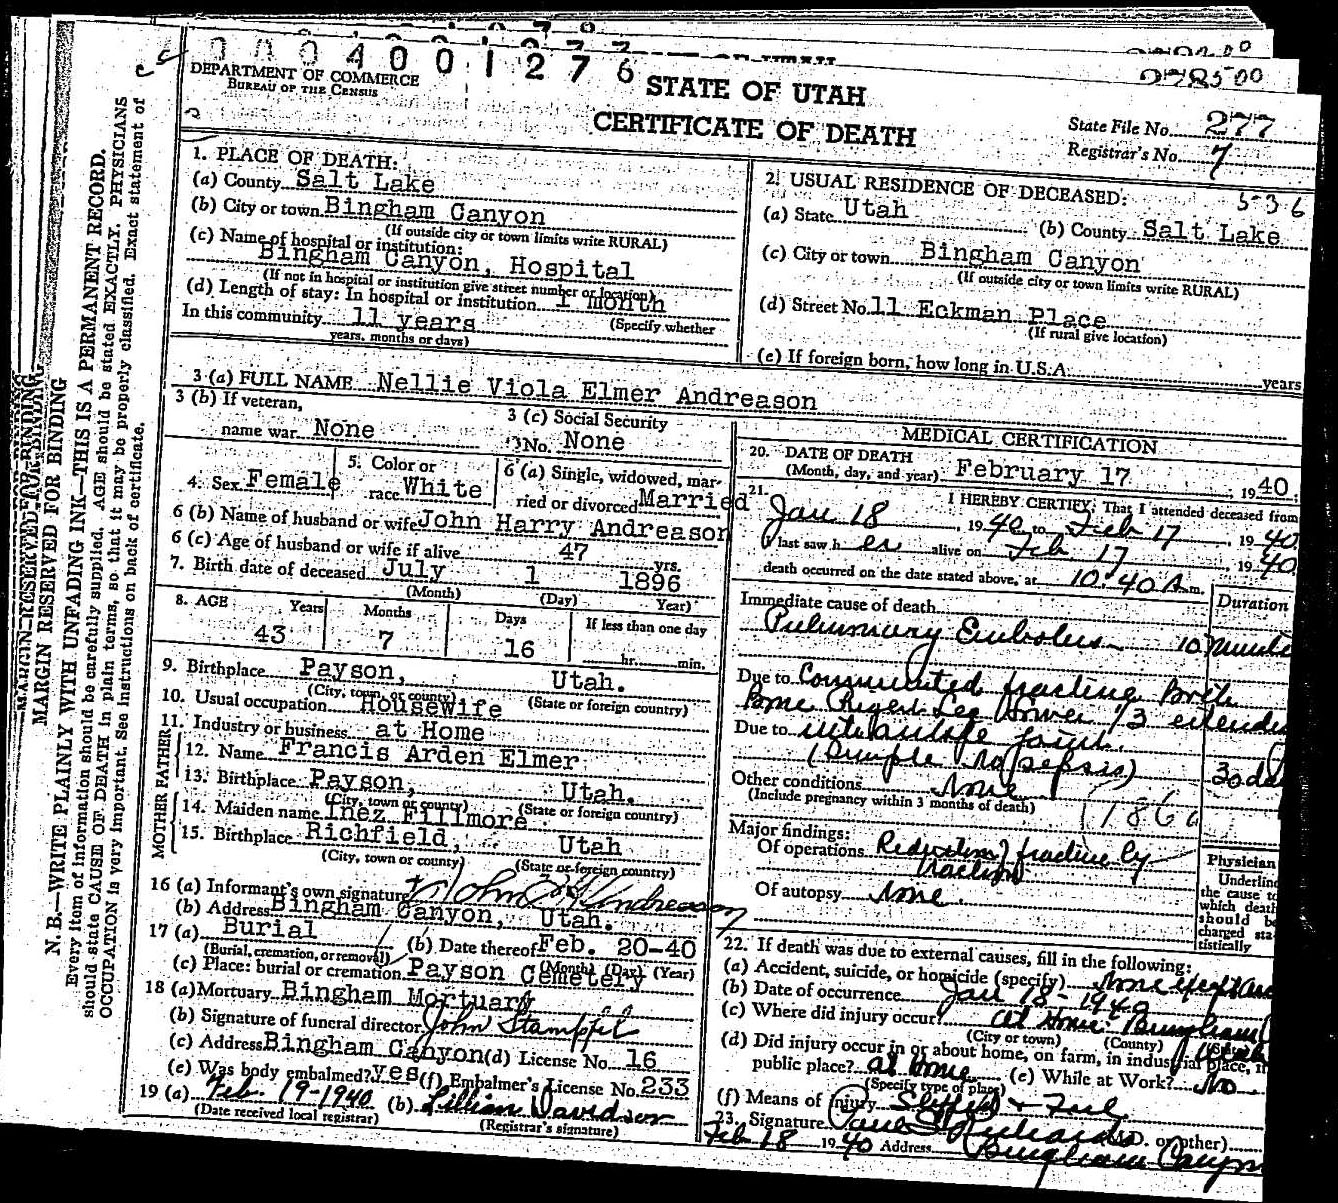 0004001276
278500
DEPARTMENT OF COMMERCE
BUREAU OF THE CENSUS
STATE OF UTAH
CERTIFICATE OF DEATH
State File No. 277
Registrar's No. 7
MARGIN RESERVED FOR BINDING
N. B.—WRITE PLAINLY WITH UNFADING INK—THIS IS A PERMANENT RECORD.
Every item of information should be carefully supplied. AGE should be stated EXACTLY. PHYSICIANS
should state CAUSE OF DEATH in plain terms, so that it may be properly classified. Exact statement of
OCCUPATION is very important. See instructions on back of certificate.
1. PLACE OF DEATH:
(a) County Salt Lake
(b) City or town Bingham Canyon
(If outside city or town limits write RURAL)
(c) Name of hospital or institution:
Bingham Canyon, Hospital
(If not in hospital or institution give street number or location)
(d) Length of stay: In hospital or institution 1 month
In this community 11 years (Specify whether
years, months or days)
2. USUAL RESIDENCE OF DECEASED: 5-36
(a) State Utah (b) County Salt Lake
(c) City or town Bingham Canyon
(If outside city or town limits write RURAL)
(d) Street No. 11 Eckman Place
(If rural give location)
(e) If foreign born, how long in U.S.A. years
3 (a) FULL NAME Nellie Viola Elmer Andreason
3 (b) If veteran,
name war None
3 (c) Social Security
No. None
4. Sex Female
5. Color or
race White
6 (a) Single, widowed, mar-
ried or divorced Married
6 (b) Name of husband or wife John Harry Andreason
6 (c) Age of husband or wife if alive 47 yrs.
7. Birth date of deceased July 1 1896
(Month) (Day) Year)
8. AGE Years Months Days If less than one day
43 7 16 hr. min.
9. Birthplace Payson, Utah.
(City, town, or county) (State or foreign country)
10. Usual occupation Housewife
11. Industry or business at Home
FATHER
12. Name Francis Arden Elmer
13. Birthplace Payson, Utah.
(City, town or county) (State or foreign country)
MOTHER
14. Maiden name Inez Fillmore
15. Birthplace Richfield, Utah
(City, town or county) (State or foreign country)
16 (a) Informant's own signature John H Andreason
(b) Address Bingham Canyon, Utah.
17 (a) Burial (b) Date thereof Feb. 20-40
(Burial, cremation, or removal) (Month) (Day) (Year)
(c) Place: burial or cremation Payson Cemetery
18 (a) Mortuary Bingham Mortuary
(b) Signature of funeral director John Stampfel
(c) Address Bingham Canyon (d) License No. 16
(e) Was body embalmed? yes (f) Embalmer's License No. 233
19 (a) Feb. 19-1940 (b) Lillian Davidson
(Date received local registrar) (Registrar's signature)
MEDICAL CERTIFICATION
20. DATE OF DEATH
(Month, day, and year) February 17 1940.
21. I HEREBY CERTIFY, That I attended deceased from
Jan 18 1940 to Feb 17 1940
I last saw her alive on Feb 17 1940
death occurred on the date stated above, at 10:40 A m.
Duration
Immediate cause of death
Pulmonary Embolus 10 minute
Due to Comminuted fracture Both
Bone Right Leg lower 1/3 extended
Due to into ankle joint.
(Simple No sepsis) 30 da
Other conditions None
(Include pregnancy within 3 months of death)
186
Major findings:
Of operations Reduction of fracture by
traction
Of autopsy None.
Physician
Underline
the cause to
which death
should be
charged sta-
tistically
22. If death was due to external causes, fill in the following:
(a) Accident, suicide, or homicide (specify) None
(b) Date of occurrence Jan 18-1940
(c) Where did injury occur? At Home Bingham Utah
(City or town) (County) (State)
(d) Did injury occur in or about home, on farm, in industrial place, in
public place? at Home (e) While at Work? No
(Specify type of place)
(f) Means of injury Slipped & Fell
23. Signature Paul S Richards (M.D. or other)
Feb 18 1940 Address Bingham Canyon